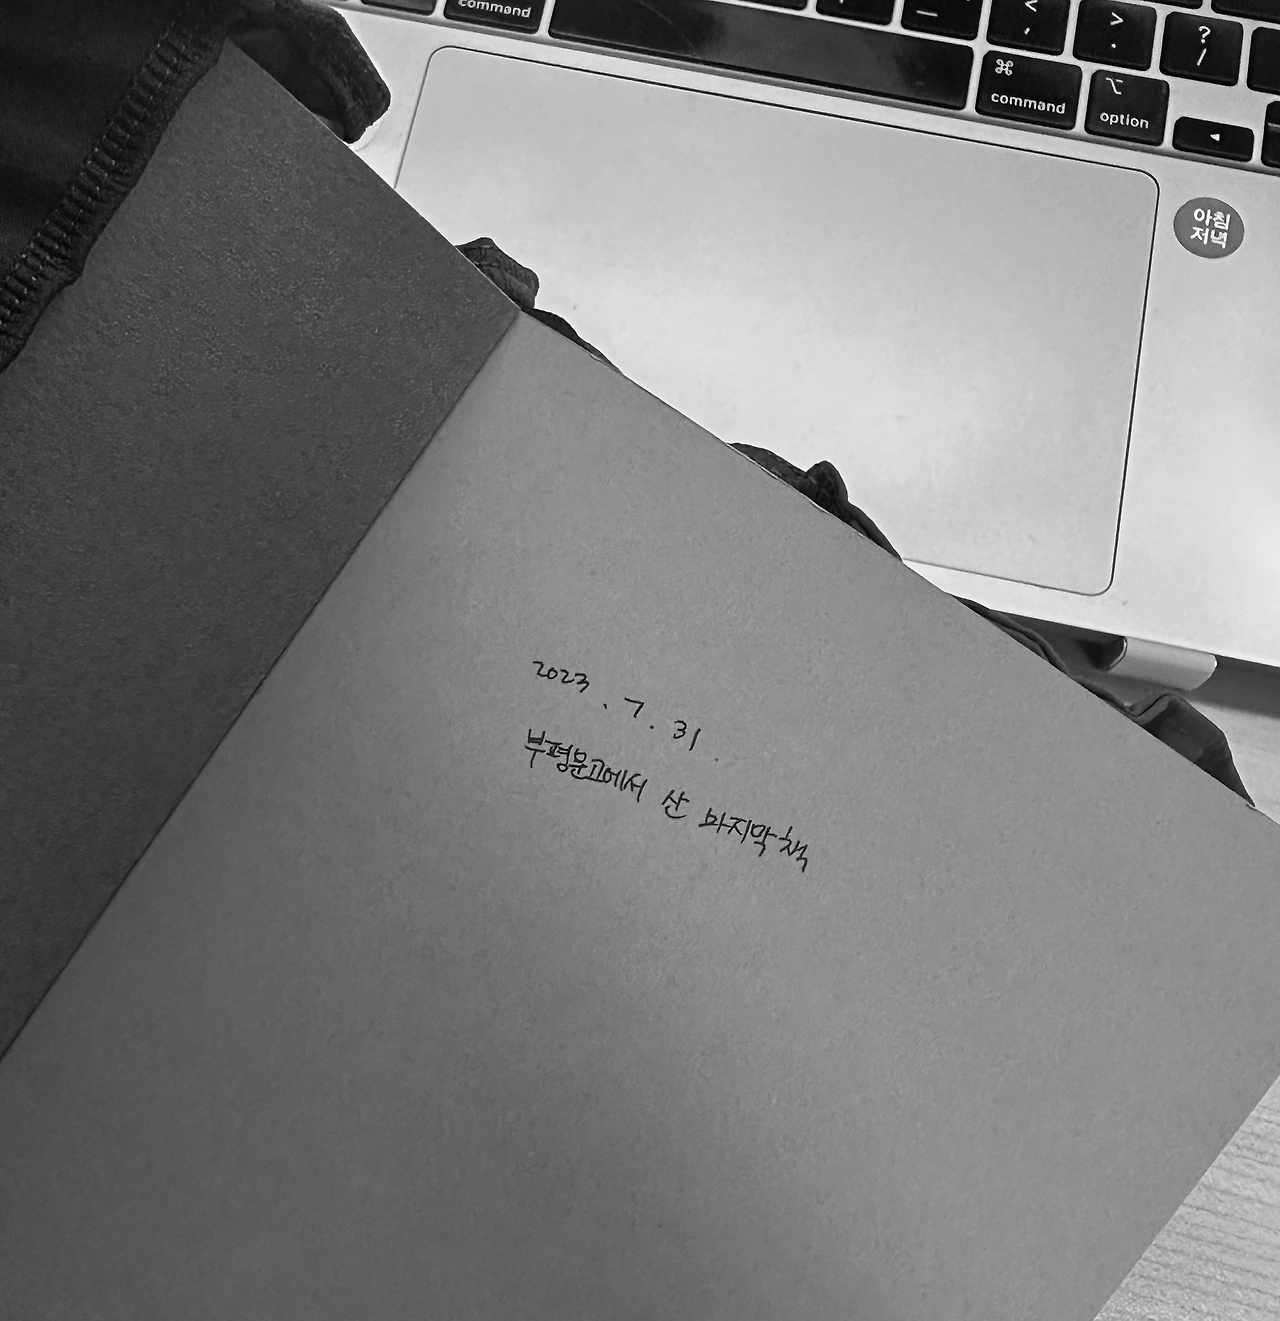 command
<
,
>
.
?
/
⌘
command
⌥
option
◂
아침
저녁
2023 . 7 . 31 .
부평문고에서 산 마지막 책